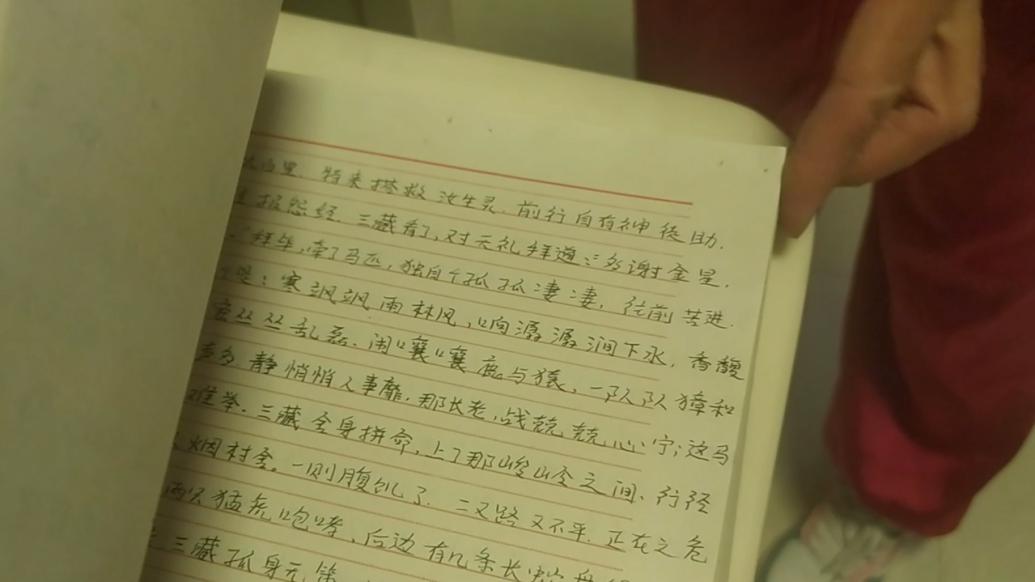 特来搭救汝生灵.前行自有神徒助.
报怨经.三藏看了,对天礼拜道:多谢金星.
拜毕,牵了马匹,独自个孤孤凄凄,往前苦进.
寒飒飒雨林风,响潺潺涧下水,香馥
丛丛乱磊.闹嚷嚷鹿与猿,一队队獐和
静悄悄人事靡.那长老,战兢兢心宁;这马
难举.三藏全身拼命,上了那峻岭之间、行经
烟村舍.一则腹饥了.二又路又不平.正在之危
两只猛虎咆哮、后边有几条长
三藏孤身无策